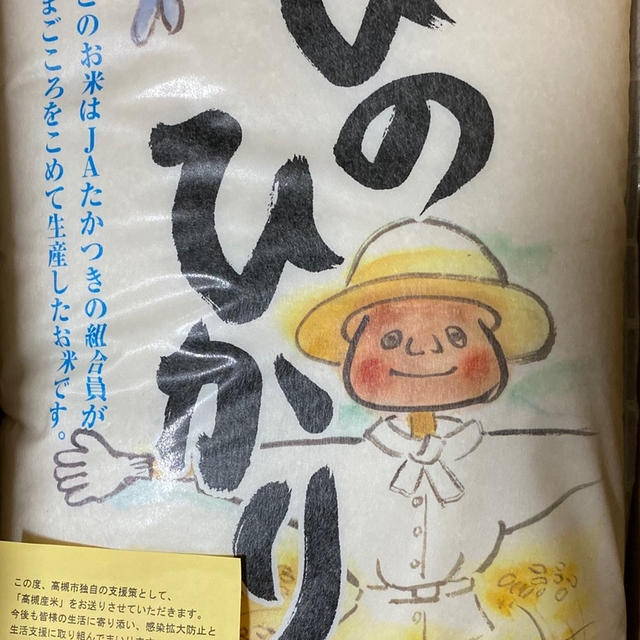 ひの
ひかり
このお米はJAたかつきの組合員が
まごころをこめて生産したお米です。
この度、高槻市独自の支援策として、
「高槻産米」をお送りさせていただきます。
今後も皆様の生活に寄り添い、感染拡大防止と
生活支援に取り組んでまいります